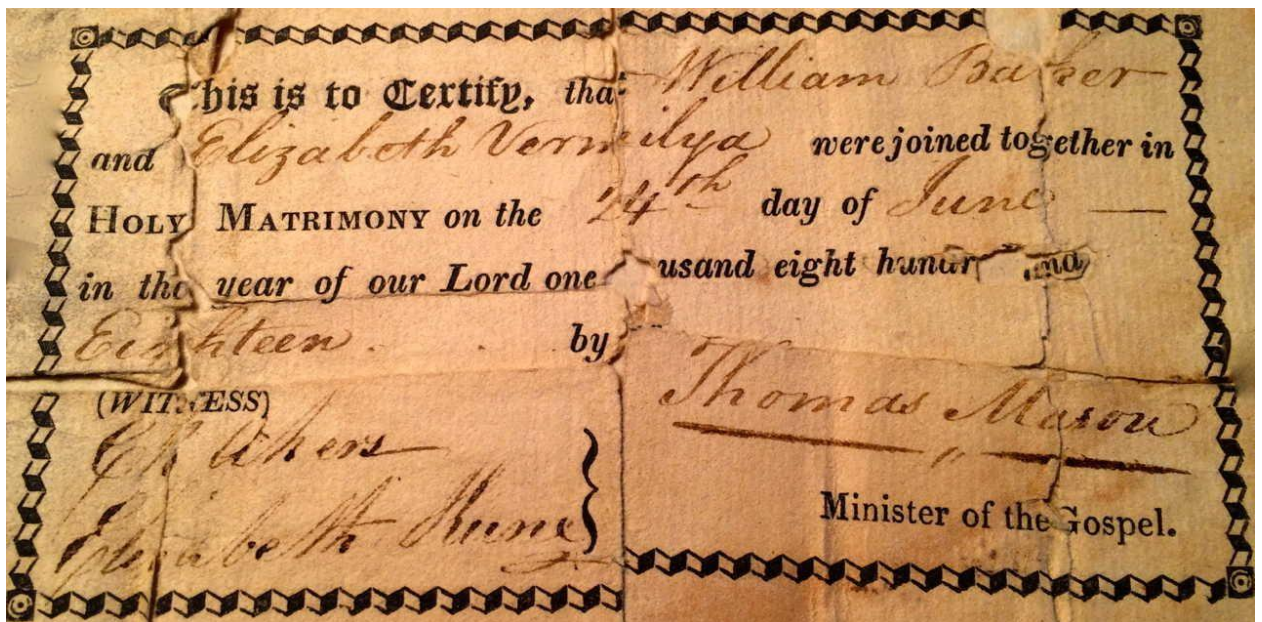 This is to Certify, that William Baker
and Elizabeth Vermilya were joined together in
HOLY MATRIMONY on the 24th day of June
in the year of our Lord one usand eight hundr and
Eighteen by
Thomas Mason
(WITNESS)
Akers
Elizabeth
Minister of the Gospel.